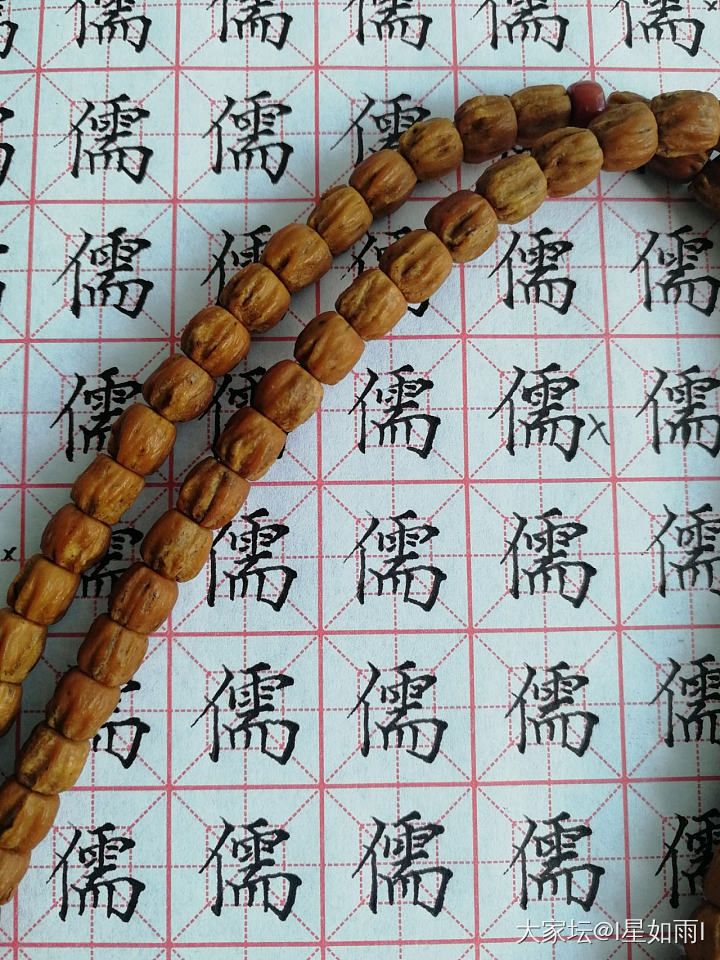 儒儒儒儒儒
儒儒儒
儒儒儒儒儒
儒儒儒儒x儒
x儒儒儒儒
儒儒儒儒
儒儒儒儒儒
大家坛@I星如雨I